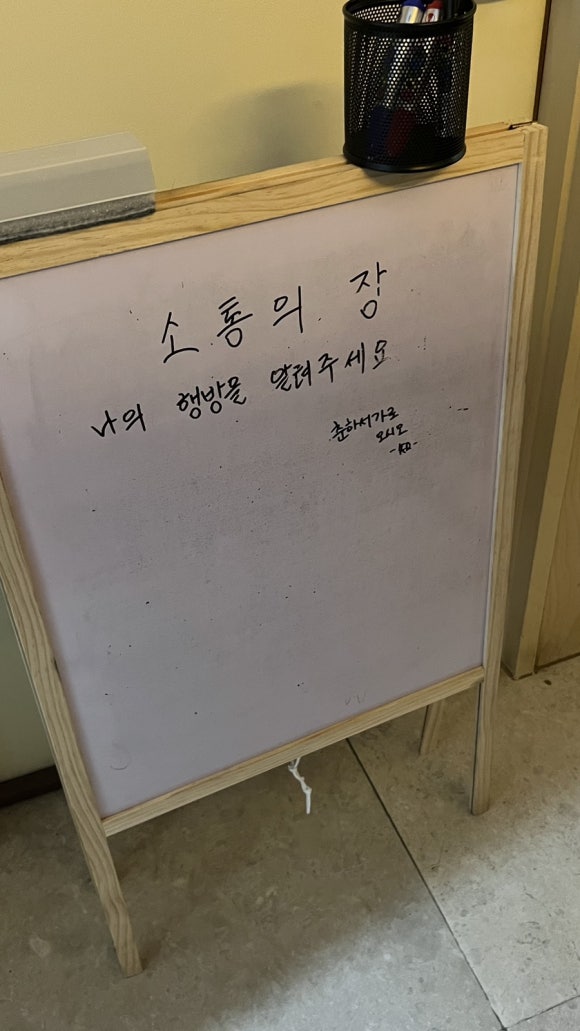 소통의 장
나의 행방을 알려주세요
춘하서가로
오시오